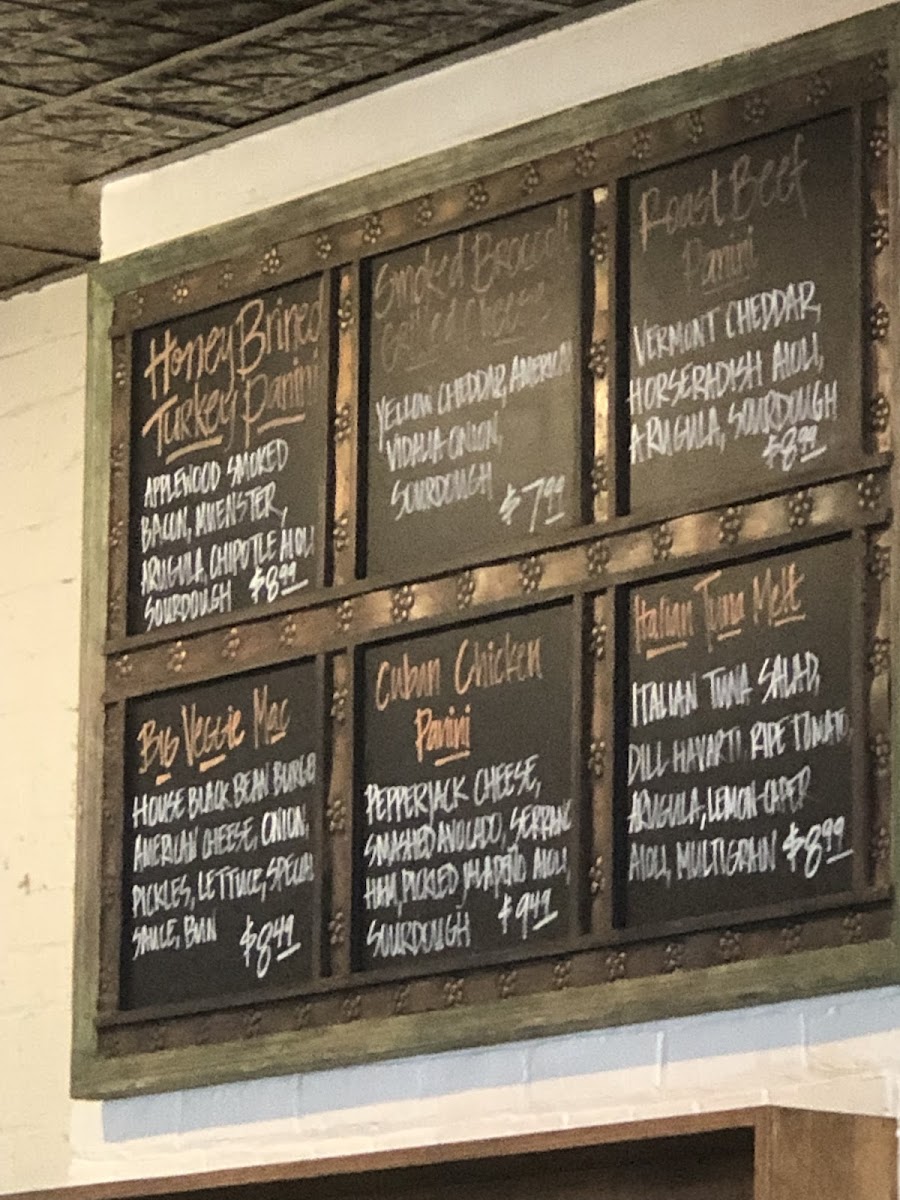 Honey Brined
Turkey Panini
APPLEWOOD SMOKED
BACON, MUENSTER,
ARUGULA, CHIPOTLE AIOLI
SOURDOUGH $8.99
Smoked Broccoli
Grilled Cheese
YELLOW CHEDDAR, AMERICAN
VIDALIA ONION,
SOURDOUGH
$7.99
Roast Beef
Panini
VERMONT CHEDDAR,
HORSERADISH AIOLI,
ARUGULA, SOURDOUGH
$8.99
Big Veggie Mac
HOUSE BLACK BEAN BURGER
AMERICAN CHEESE, ONION,
PICKLES, LETTUCE, SPECIAL
SAUCE, BUN $8.49
Cuban Chicken
Panini
PEPPERJACK CHEESE,
SMASHED AVOCADO, SERRANO
HAM, PICKLED JALAPEÑO AIOLI,
SOURDOUGH $9.49
Italian Tuna Melt
ITALIAN TUNA SALAD,
DILL HAVARTI RIPE TOMATO,
ARUGULA, LEMON-CAPER
AIOLI, MULTIGRAIN $8.99